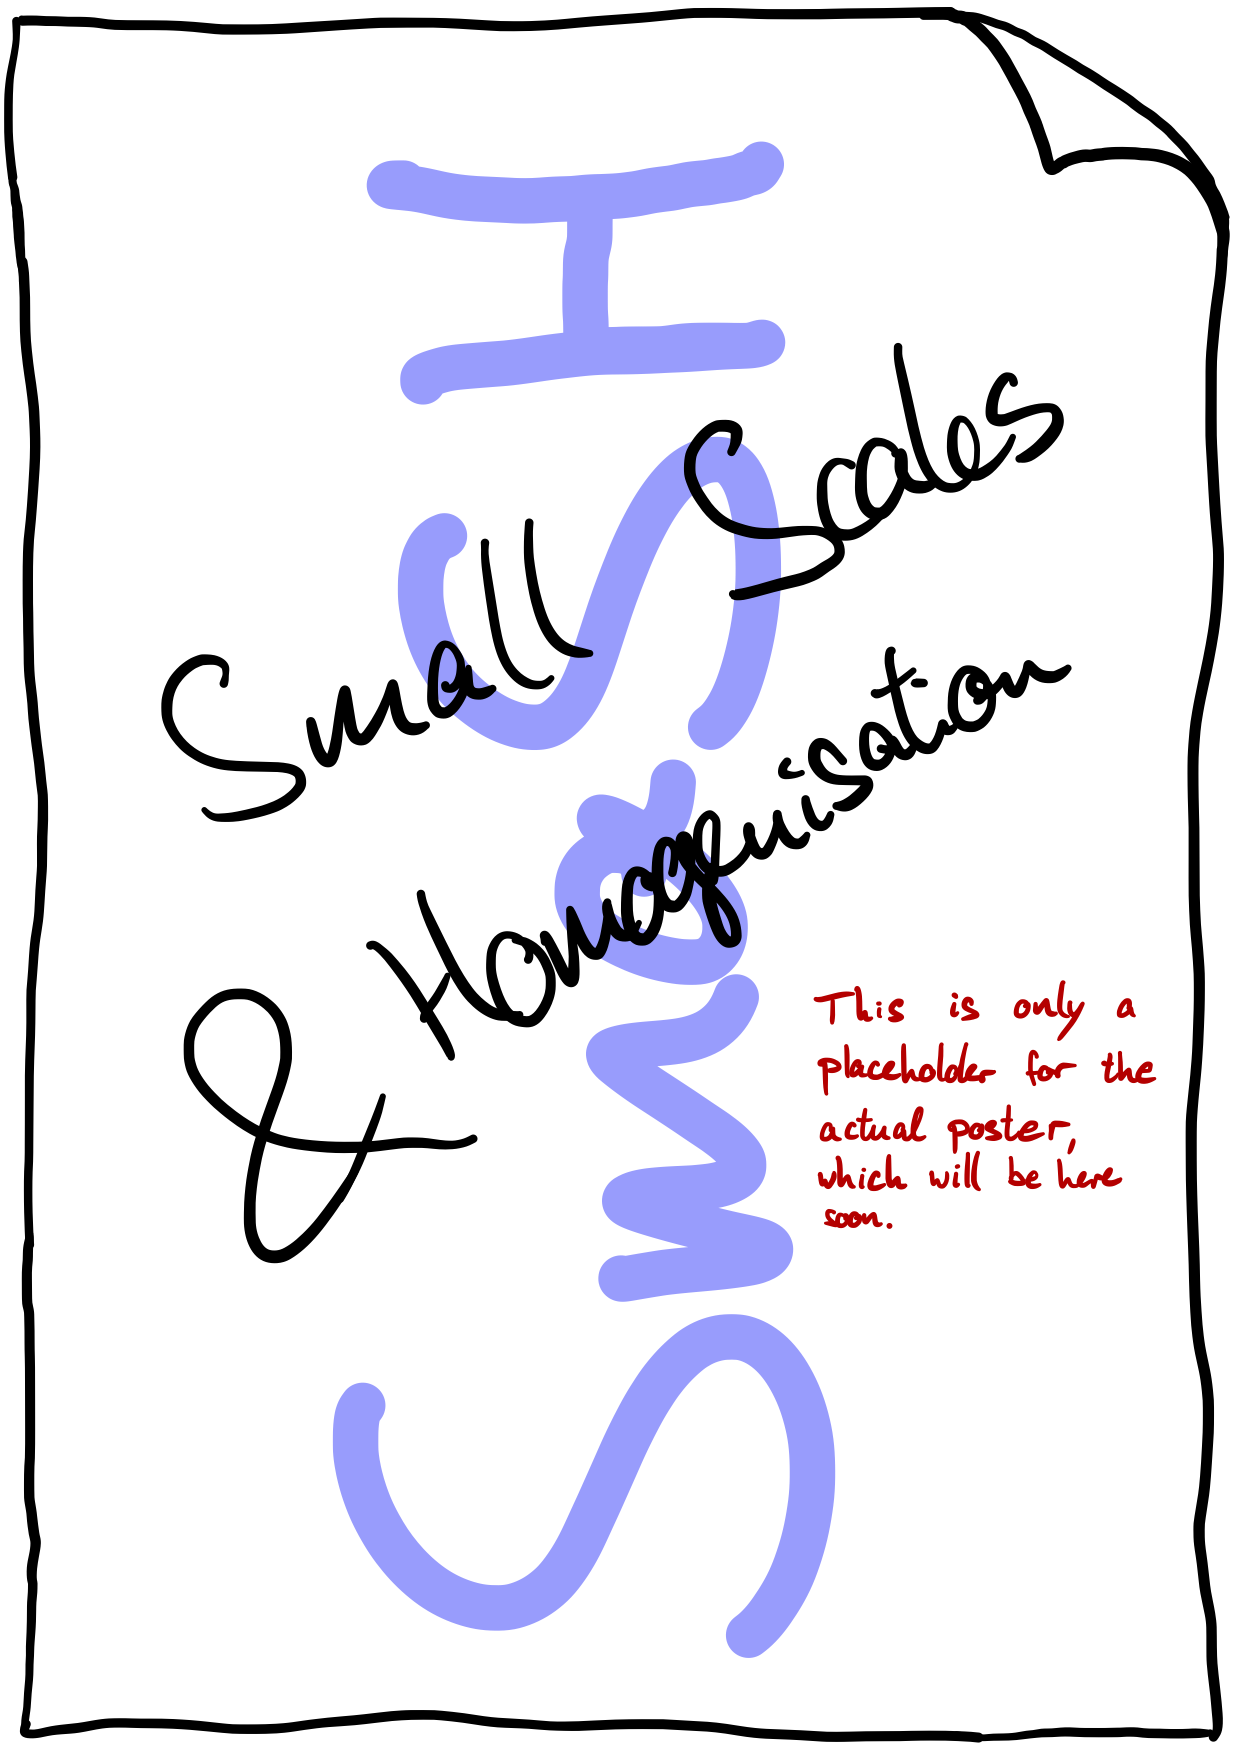 SmaSH
Small Scales
& Homogenisation
This is only a
placeholder for the
actual poster,
which will be here
soon.